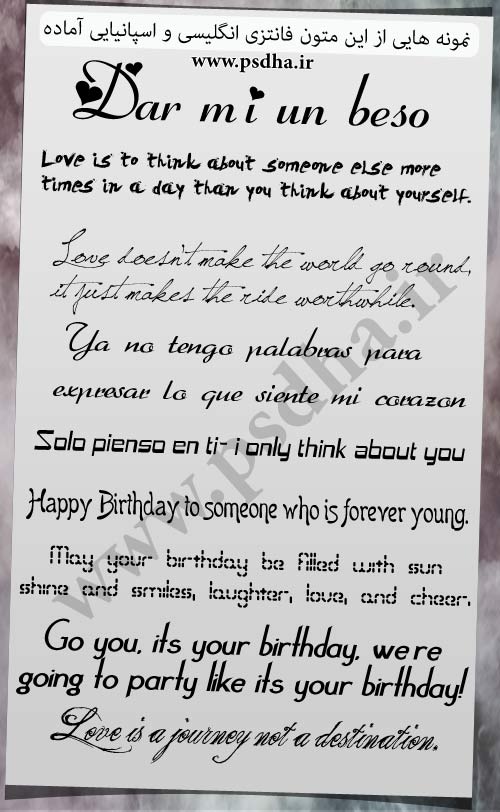 نمونه هایی از این متون فانتزی انگلیسی و اسپانیایی آماده
www.psdha.ir
Dar mi un beso
Love is to think about someone else more
times in a day than you think about yourself.
Love doesn't make the world go round,
it just makes the ride worthwhile.
Ya no tengo palabras para
expresar lo que siente mi corazon
Solo pienso en ti- i only think about you
Happy Birthday to someone who is forever young.
May your birthday be filled with sun
shine and smiles, laughter, love, and cheer.
Go you, its your birthday, we're
going to party like its your birthday!
Love is a journey not a destination.
www.psdha.ir